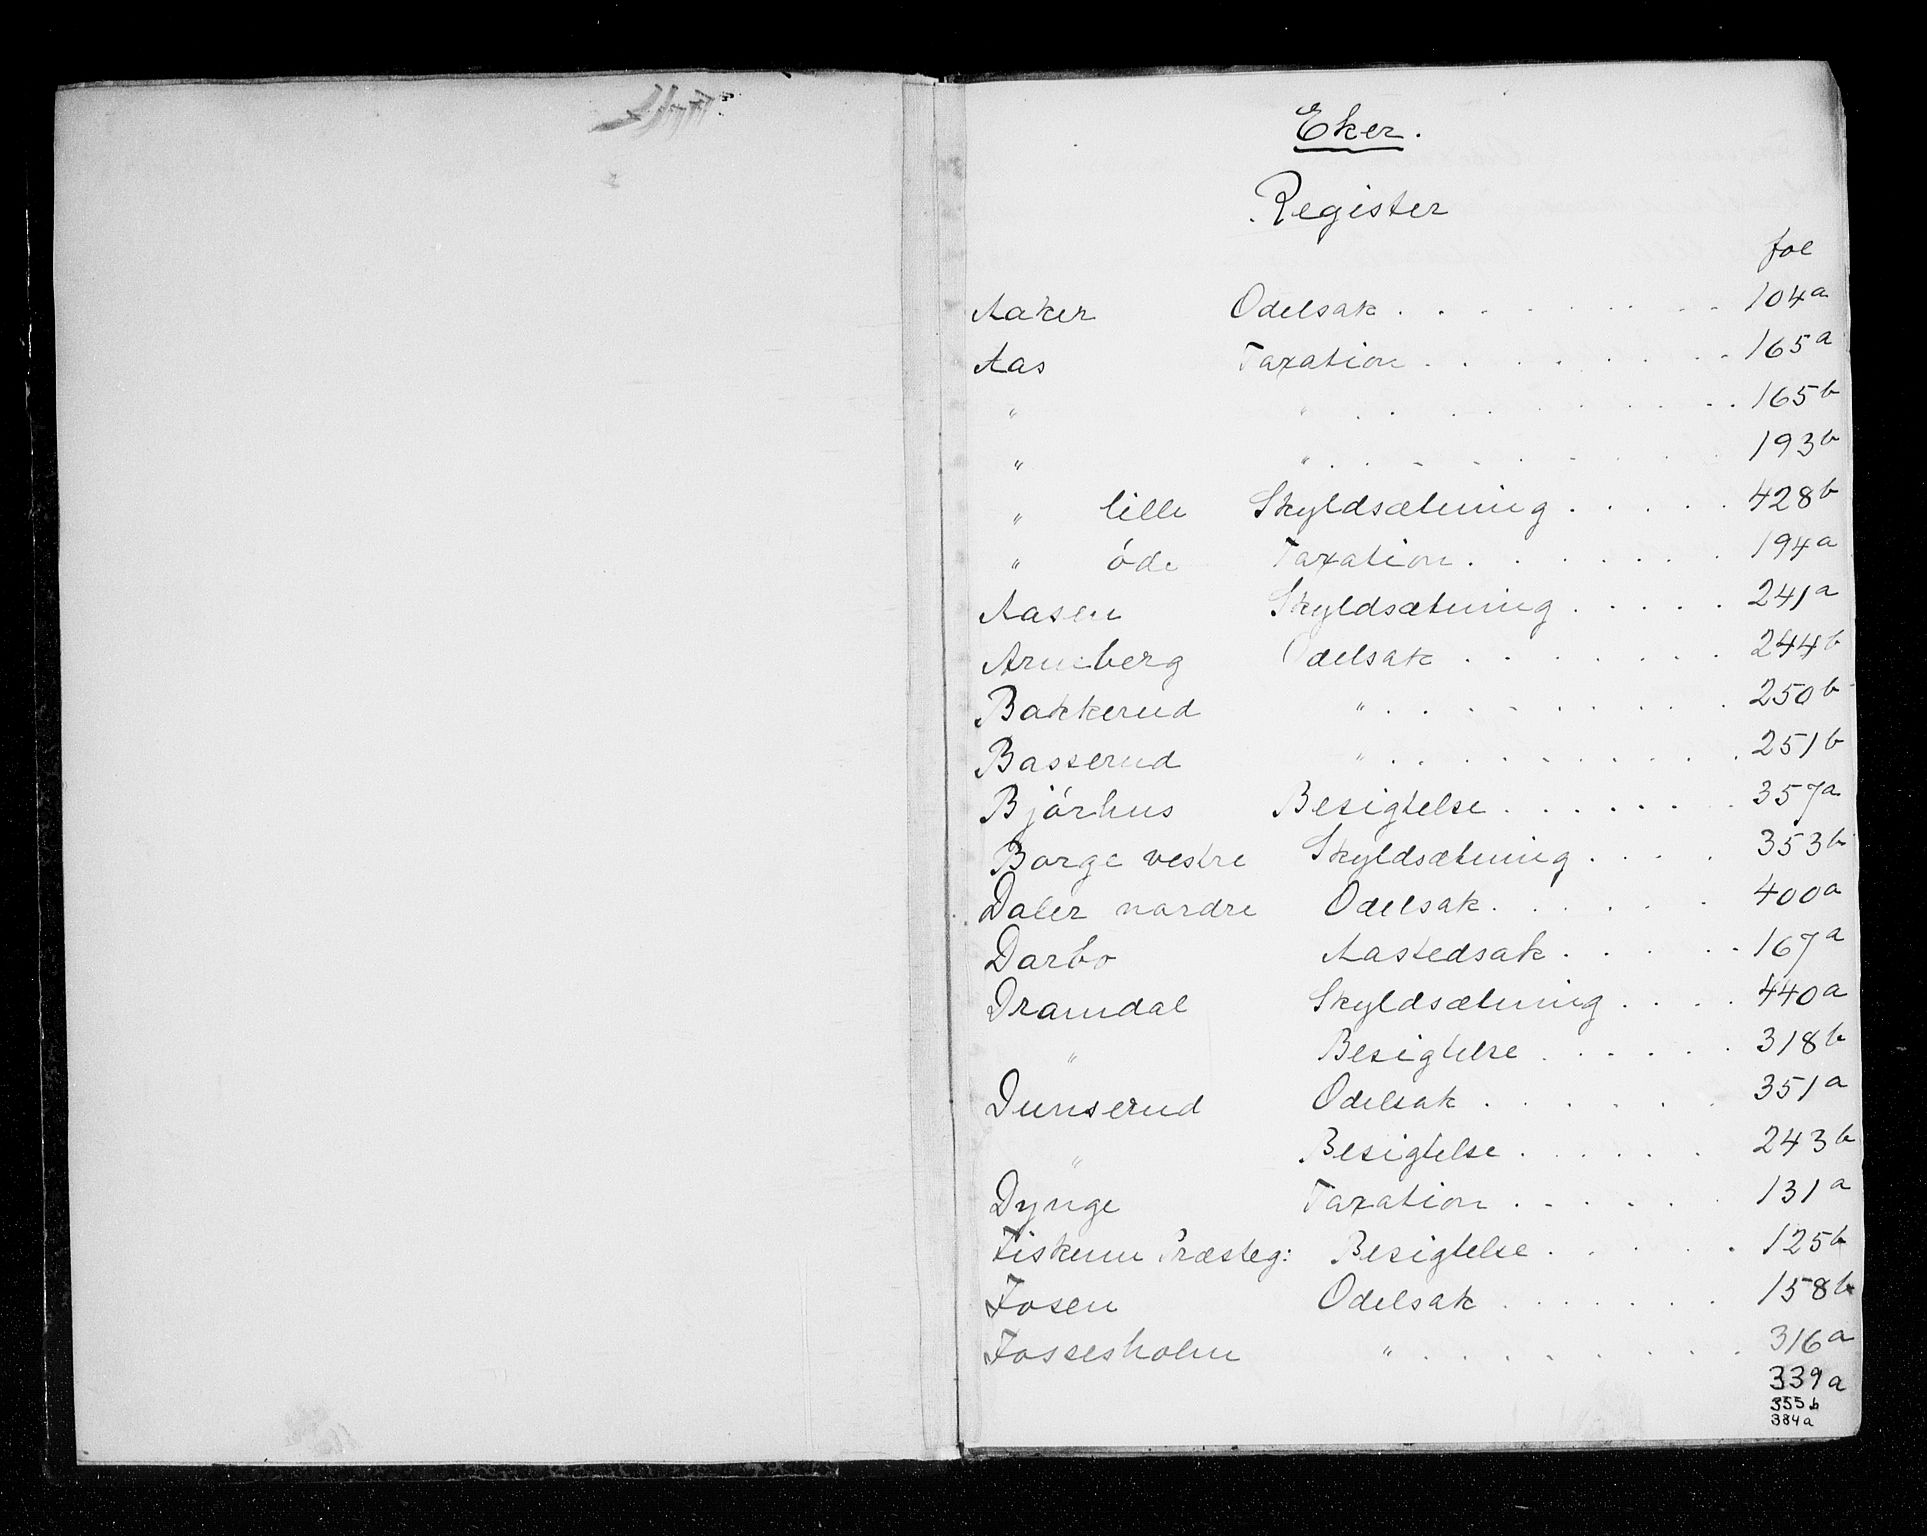 Eker.
Register
fol
Aaker Odelsak . . . . . . . . 104a
Aas Taxation . . . . . . . 165a
" " . . . . . . . . . 165b
" " . . . . . . . . 193b
" lille Skyldsætning . . . . . 428b
" öde Taxation . . . . . . 194a
Aasen Skyldsætning . . . . . 241a
Arneberg Odelsak . . . . . . . 244b
Bakkerud " . . . . . . . . . 250b
Basserud " . . . . . . . . . . 251b
Bjórhus Besigtelse . . . . . . 357a
Borge vestre Skyldsætning . . . . 353b
Daler nordre Odelsak . . . . . . 400a
Darbo Aastedsak . . . . . 167a
Dramdal Skyldsætning . . . . 440a
" Besigtelse . . . . . . 318b
Dunserud Odelsak . . . . . . 351a
" Besigtelse . . . . . . 243b
Dynge Taxation . . . . . . 131a
Fiskum Præsteg: Besigtelse . . . . . 125b
Fosen Odelsak . . . . . . . 158b
Fossesholm " . . . . . . . . . 316a
339a
355b
384a